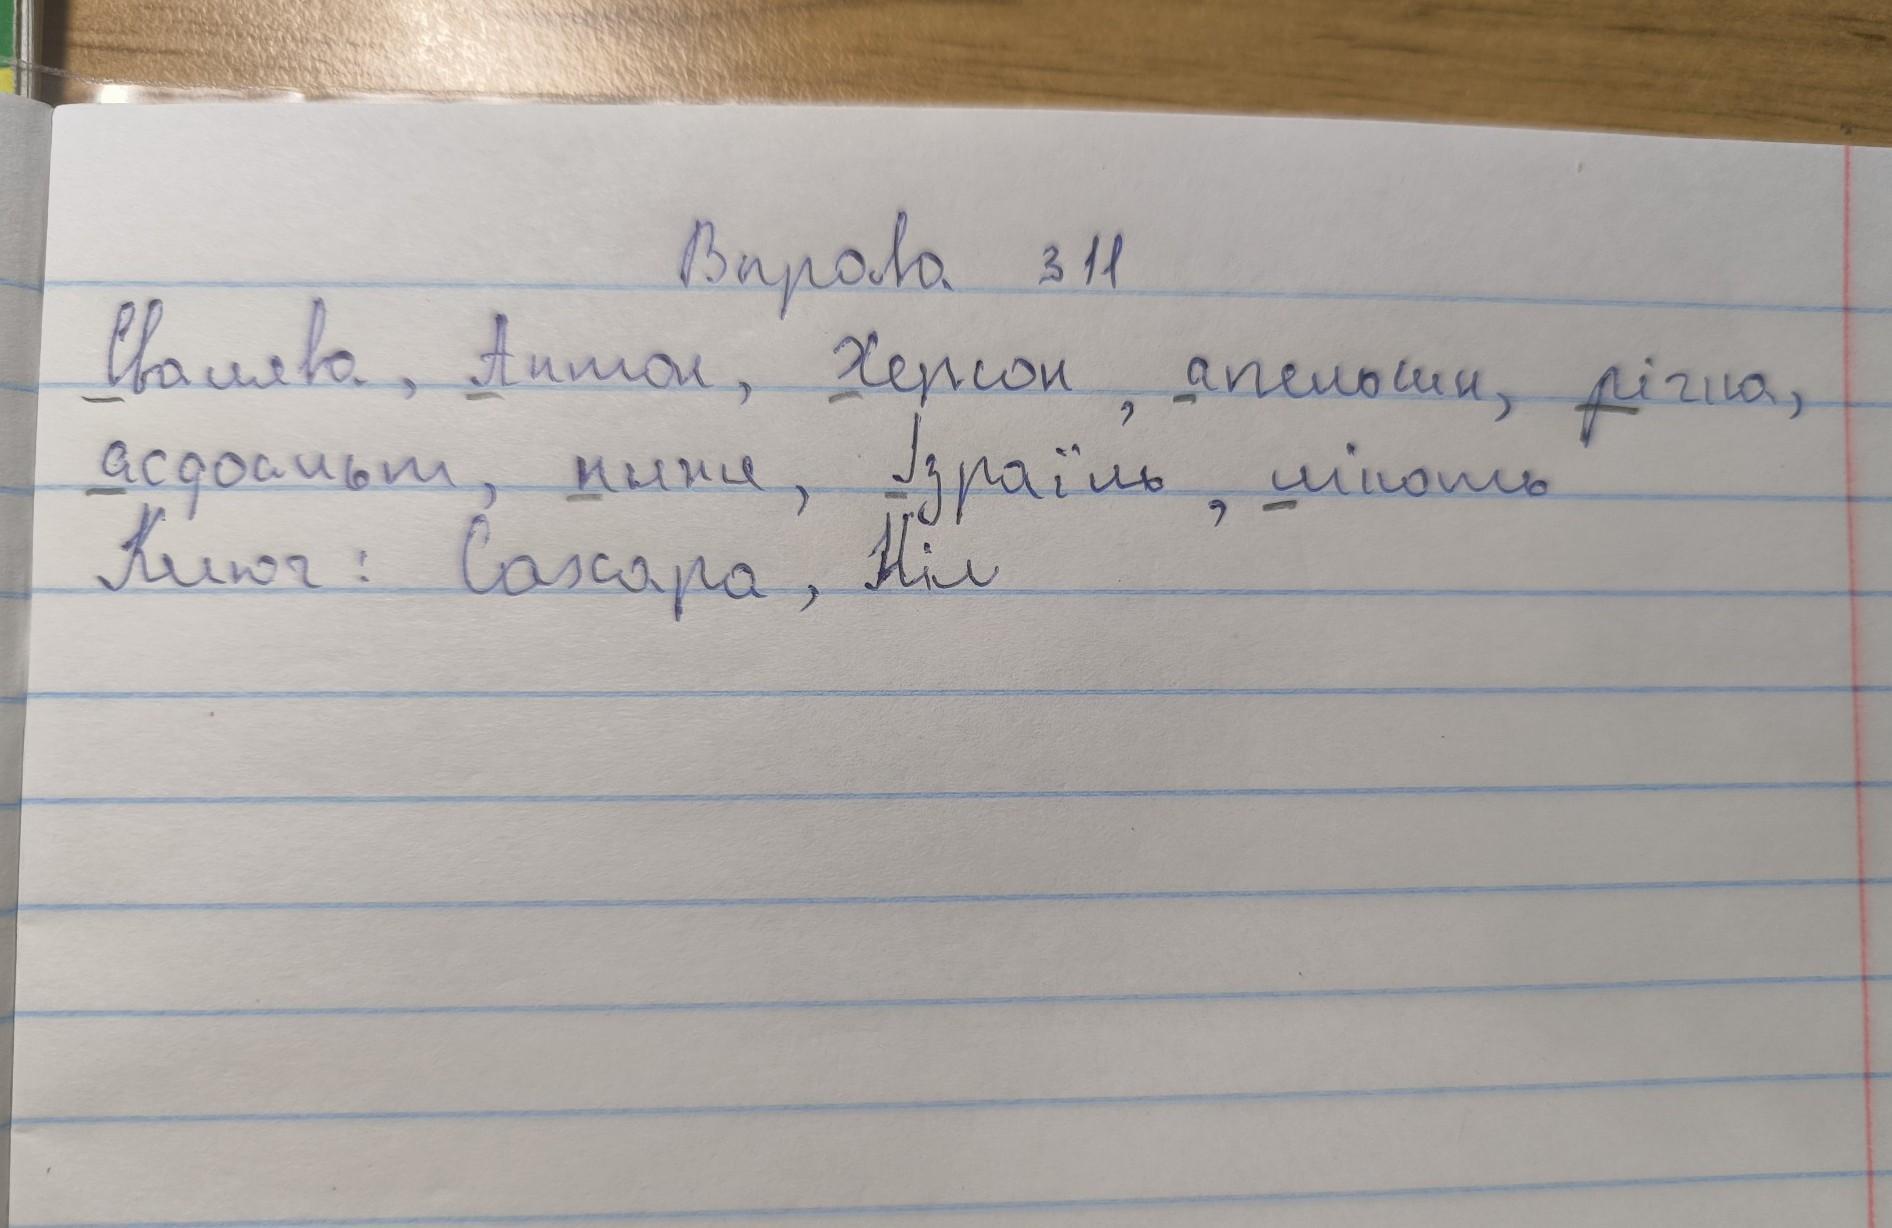 Вправа 311
Свалява, Антон, Херсон, апельсин, річка,
асфальт, няня, Ізраїль, лікоть
Ключ: Сахара, Ніл